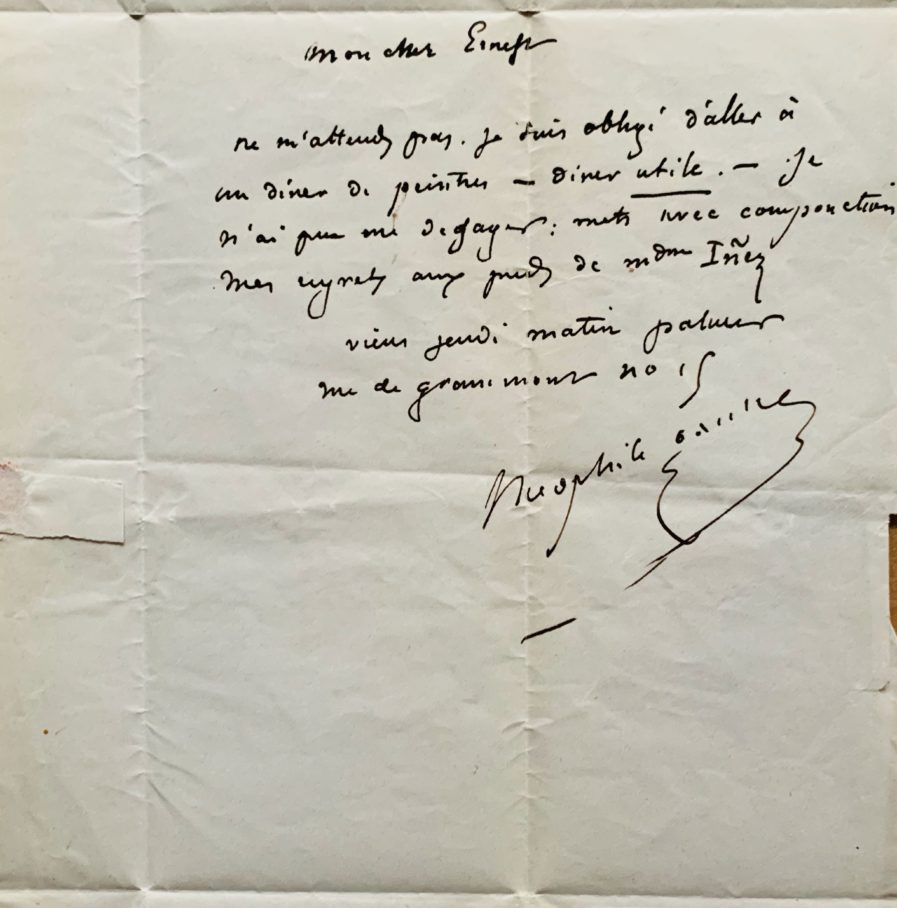 mon cher Ernest
ne m'attends pas. je suis obligé d'aller à
un dîner de peintres — diner utile. — Je
n'ai pu me degager: mets avec componction
mes regrets aux pieds de mdme Iñez
viens jeudi matin
rue de grammont no 15
Theophile Gautier